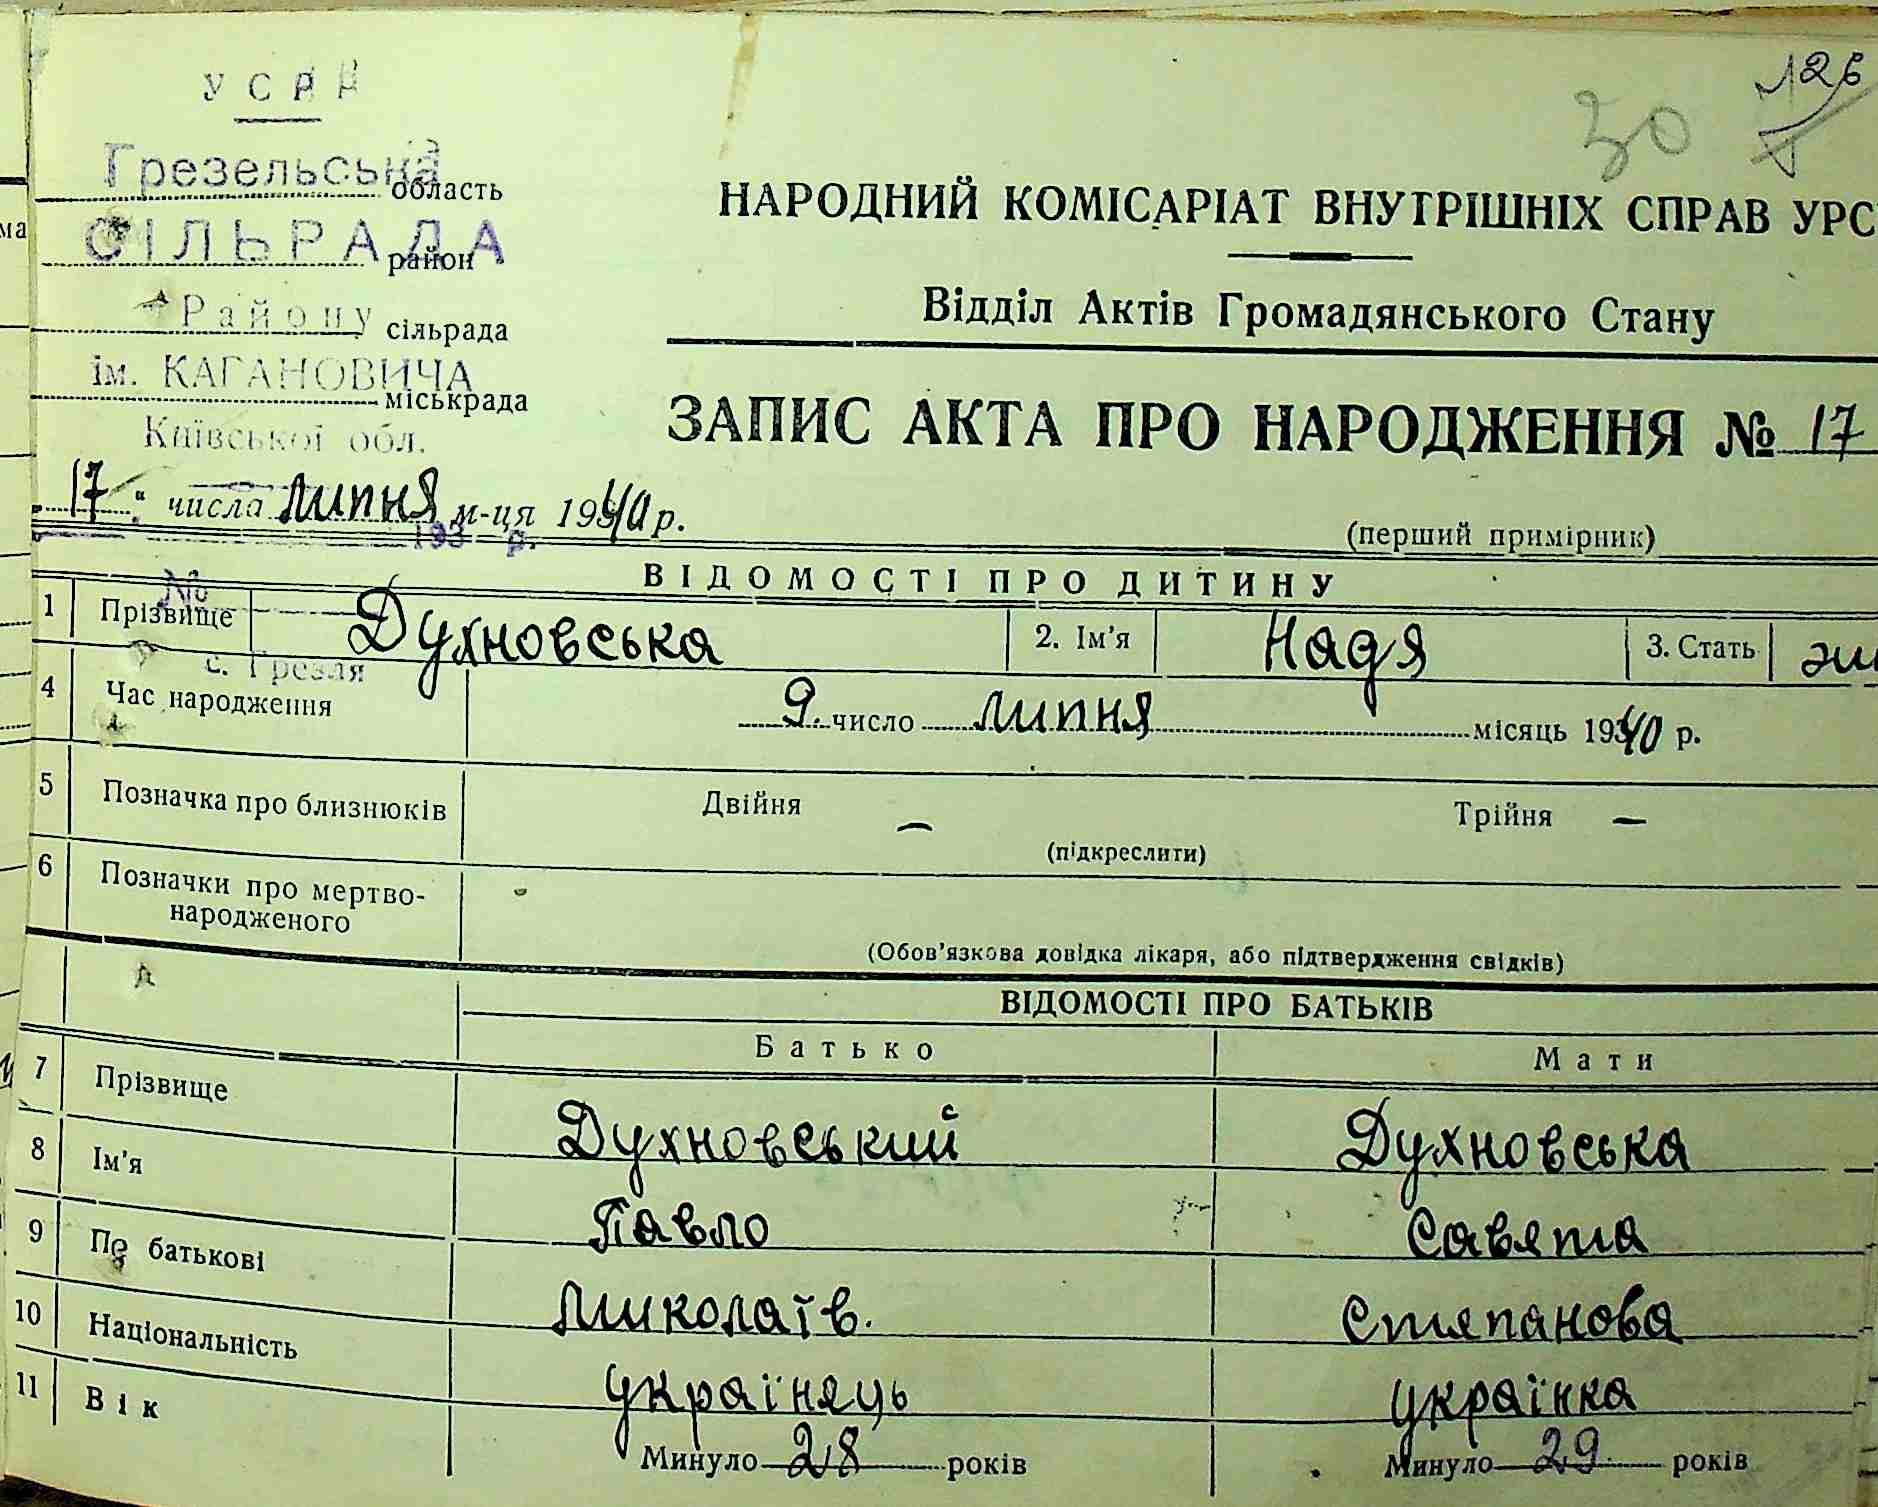 УСРР
Грезельська
область
СІЛЬРАДА
район
Району
сільрада
ім. КАГАНОВИЧА
міськрада
Київської обл.
126
30
НАРОДНИЙ КОМІСАРІАТ ВНУТРІШНІХ СПРАВ УРС
Відділ Актів Громадянського Стану
ЗАПИС АКТА ПРО НАРОДЖЕННЯ № 17
17 " числа липня м-ця 1940 р.
193 р.
(перший примірник)
ВІДОМОСТІ ПРО ДИТИНУ
№
1 Прізвище Духновська 2. Ім'я Надя 3. Стать
с. Грезля
4 Час народження 9. число липня місяць 1940 р.
5 Позначка про близнюків Двійня — Трійня —
(підкреслити)
6 Позначки про мертво-
народженого
(Обов'язкова довідка лікаря, або підтвердження свідків)
ВІДОМОСТІ ПРО БАТЬКІВ
Батько Мати
7 Прізвище Духновський Духновська
8 Ім'я Павло Савята
9 По батькові Миколаїв. Стяпанова
10 Національність україняць українка
11 Вік Минуло 28 років Минуло 29 років